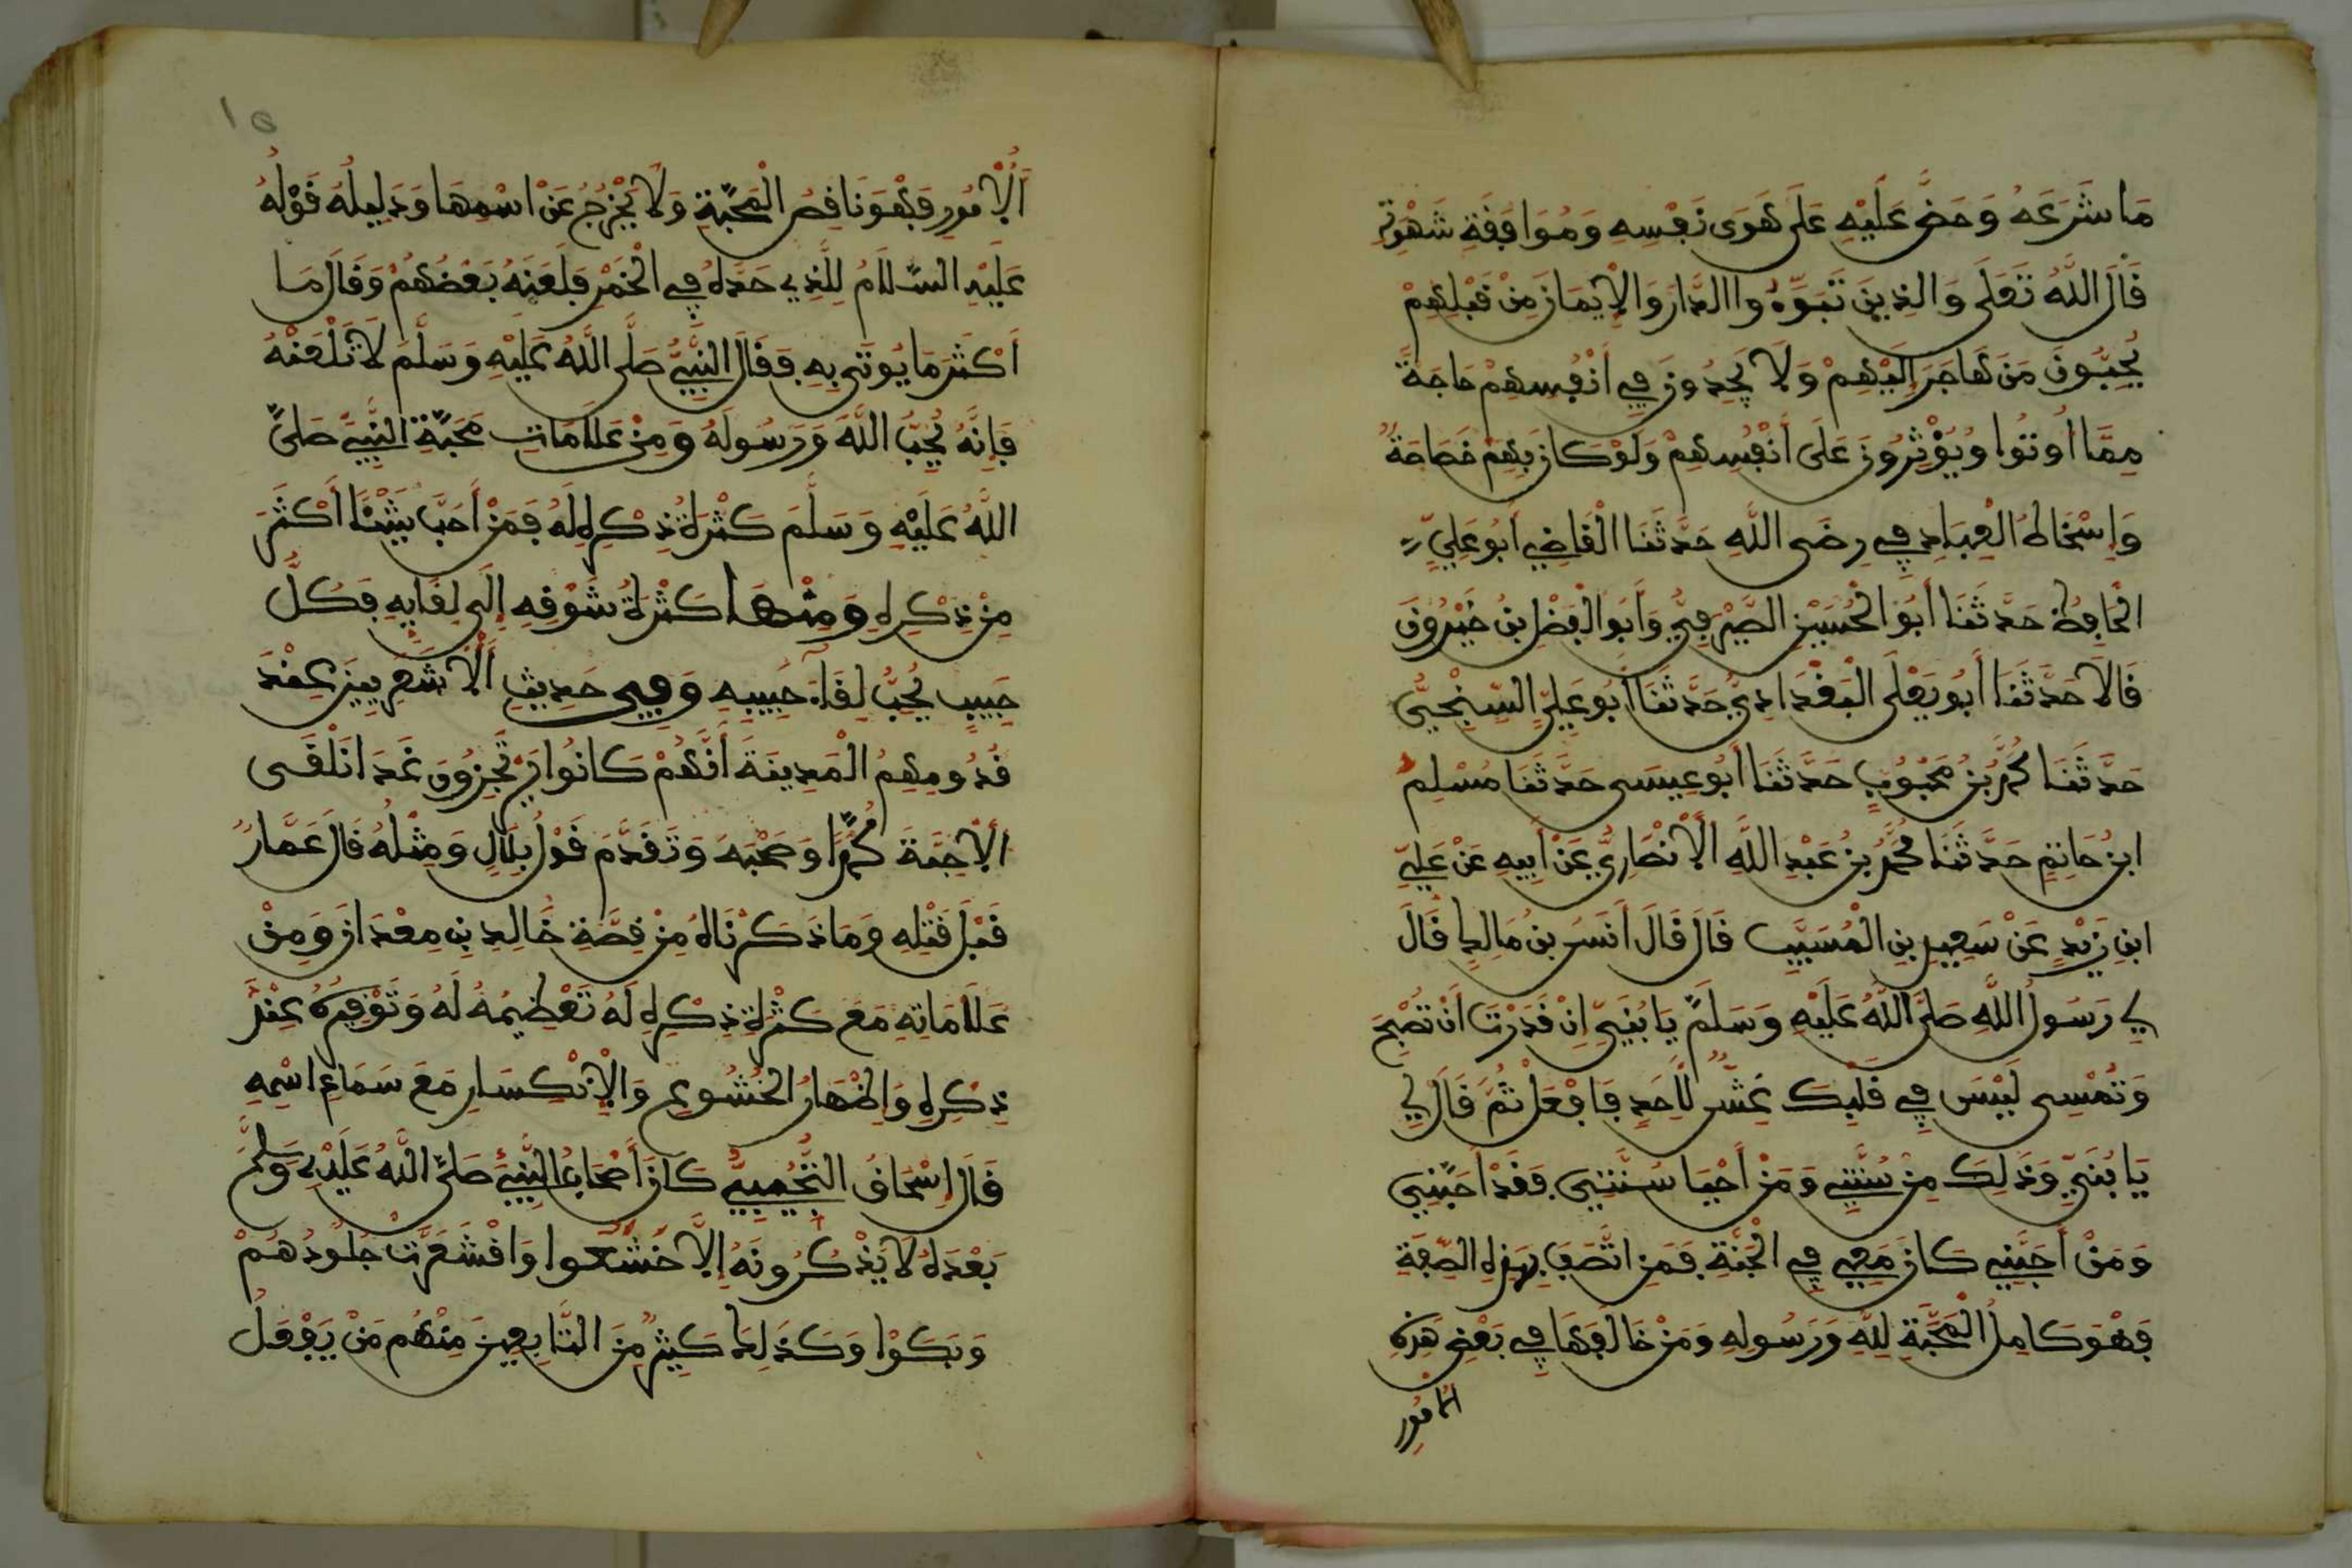 مَا شَرَعَهُ وَحَضَّ عَلَيْهِ عَلَى هَوَى نَفْسِهِ وَمُوَافَقَةِ شَهْوَتِهِ
قَالَ اللَّهُ تَعَلَى وَالذِينَ تَبَوَّءُوا الدَّارَ وَالْإِيمَانَ مِنْ قَبْلِهِمْ
يُحِبُّونَ مَنْ هَاجَرَ إِلَيْهِمْ وَلَا يَجِدُونَ فِي أَنْفُسِهِمْ حَاجَةً
مِمَّا أُوتُوا وَيُؤْثِرُونَ عَلَى أَنْفُسِهِمْ وَلَوْ كَانَ بِهِمْ خَصَاصَةٌ
وَإِسْخَاطُ الْعِبَادِ فِي رِضَى اللَّهِ حَدَّثَنَا الْقَاضِي أَبُو عَلِيٍّ
الْحَافِظُ حَدَّثَنَا أَبُو الْحُسَيْنِ الصَّيْرَفِيُّ وَأَبُو الْفَضْلِ بْنُ خَيْرُونَ
قَالَا حَدَّثَنَا أَبُو يَعْلَى الْبَغْدَادِيُّ حَدَّثَنَا أَبُو عَلِيٍّ السِّنْجِيُّ
حَدَّثَنَا مُحَمَّدُ بْنُ مَحْبُوبٍ حَدَّثَنَا أَبُو عِيسَى حَدَّثَنَا مُسْلِمُ
ابْنُ حَاتِمٍ حَدَّثَنَا مُحَمَّدُ بْنُ عَبْدِ اللَّهِ الْأَنْصَارِيُّ عَنْ أَبِيهِ عَنْ عَلِيِّ
ابْنِ زَيْدٍ عَنْ سَعِيدِ بْنِ الْمُسَيَّبِ قَالَ قَالَ أَنَسُ بْنُ مَالِكٍ قَالَ
لِي رَسُولُ اللَّهِ صَلَّى اللَّهُ عَلَيْهِ وَسَلَّمَ يَا بُنَيَّ إِنْ قَدَرْتَ أَنْ تُصْبِحَ
وَتُمْسِيَ لَيْسَ فِي قَلْبِكَ غِشٌّ لِأَحَدٍ فَافْعَلْ ثُمَّ قَالَ لِي
يَا بُنَيَّ وَذَلِكَ مِنْ سُنَّتِي وَمَنْ أَحْيَا سُنَّتِي فَقَدْ أَحَبَّنِي
وَمَنْ أَحَبَّنِي كَانَ مَعِي فِي الْجَنَّةِ فَمَنِ اتَّصَفَ بِهَذِهِ الصِّفَةِ
فَهْوَ كَامِلُ الْمَحَبَّةِ لِلَّهِ وَرَسُولِهِ وَمَنْ خَالَفَهَا فِي بَعْضِ هَذِهِ
الْأُمُورِ
١٥
الْأُمُورِ فَهْوَ نَاقِصُ الْمَحَبَّةِ وَلَا يَخْرُجُ عَنِ اسْمِهَا وَدَلِيلُهُ قَوْلُهُ
عَلَيْهِ السَّلَامُ لِلَّذِي حَدَّهُ فِي الْخَمْرِ فَلَعَنَهُ بَعْضُهُمْ وَقَالَ مَا
أَكْثَرَ مَا يُوتَى بِهِ فَقَالَ النَّبِيُّ صَلَّى اللَّهُ عَلَيْهِ وَسَلَّمَ لَا تَلْعَنْهُ
فَإِنَّهُ يُحِبُّ اللَّهَ وَرَسُولَهُ وَمِنْ عَلَامَاتِ مَحَبَّةِ النَّبِيِّ صَلَّى
اللَّهُ عَلَيْهِ وَسَلَّمَ كَثْرَةُ ذِكْرِهِ لَهُ فَمَنْ أَحَبَّ شَيْئًا أَكْثَرَ
مِنْ ذِكْرِهِ وَمِنْهَا كَثْرَةُ شَوْقِهِ إِلَى لِقَايِهِ فَكُلُّ
حَبِيبٍ يُحِبُّ لِقَاءَ حَبِيبِهِ وَفِي حَدِيثِ الْأَشْعَرِيِّينَ عِنْدَ
قُدُومِهِمُ الْمَدِينَةَ أَنَّهُمْ كَانُوا يَرْتَجِزُونَ غَدًا نَلْقَى
الْأَحِبَّةَ مُحَمَّدًا وَصَحْبَهُ وَتَقَدَّمَ قَوْلُ بِلَالٍ وَمِثْلُهُ قَالَ عَمَّارٌ
قَبْلَ قَتْلِهِ وَمَا ذَكَرْنَاهُ مِنْ قِصَّةِ خَالِدِ بْنِ مِعْدَانَ وَمِنْ
عَلَامَاتِهِ مَعَ كَثْرَةِ ذِكْرِهِ لَهُ تَعْظِيمُهُ لَهُ وَتَوْقِيرُهُ عِنْدَ
ذِكْرِهِ وَإِظْهَارُ الْخُشُوعِ وَالْإِنْكِسَارِ مَعَ سَمَاعِ اسْمِهِ
قَالَ إِسْحَاقُ التُّجِيبِيُّ كَانَ أَصْحَابُ النَّبِيِّ صَلَّى اللَّهُ عَلَيْهِ وَسَلَّمَ
بَعْدَهُ لَا يَذْكُرُونَهُ إِلَّا خَشَعُوا وَاقْشَعَرَّتْ جُلُودُهُمْ
وَبَكَوْا وَكَذَلِكَ كَثِيرٌ مِنَ التَّابِعِينَ مِنْهُمْ مَنْ يَفْعَلُ